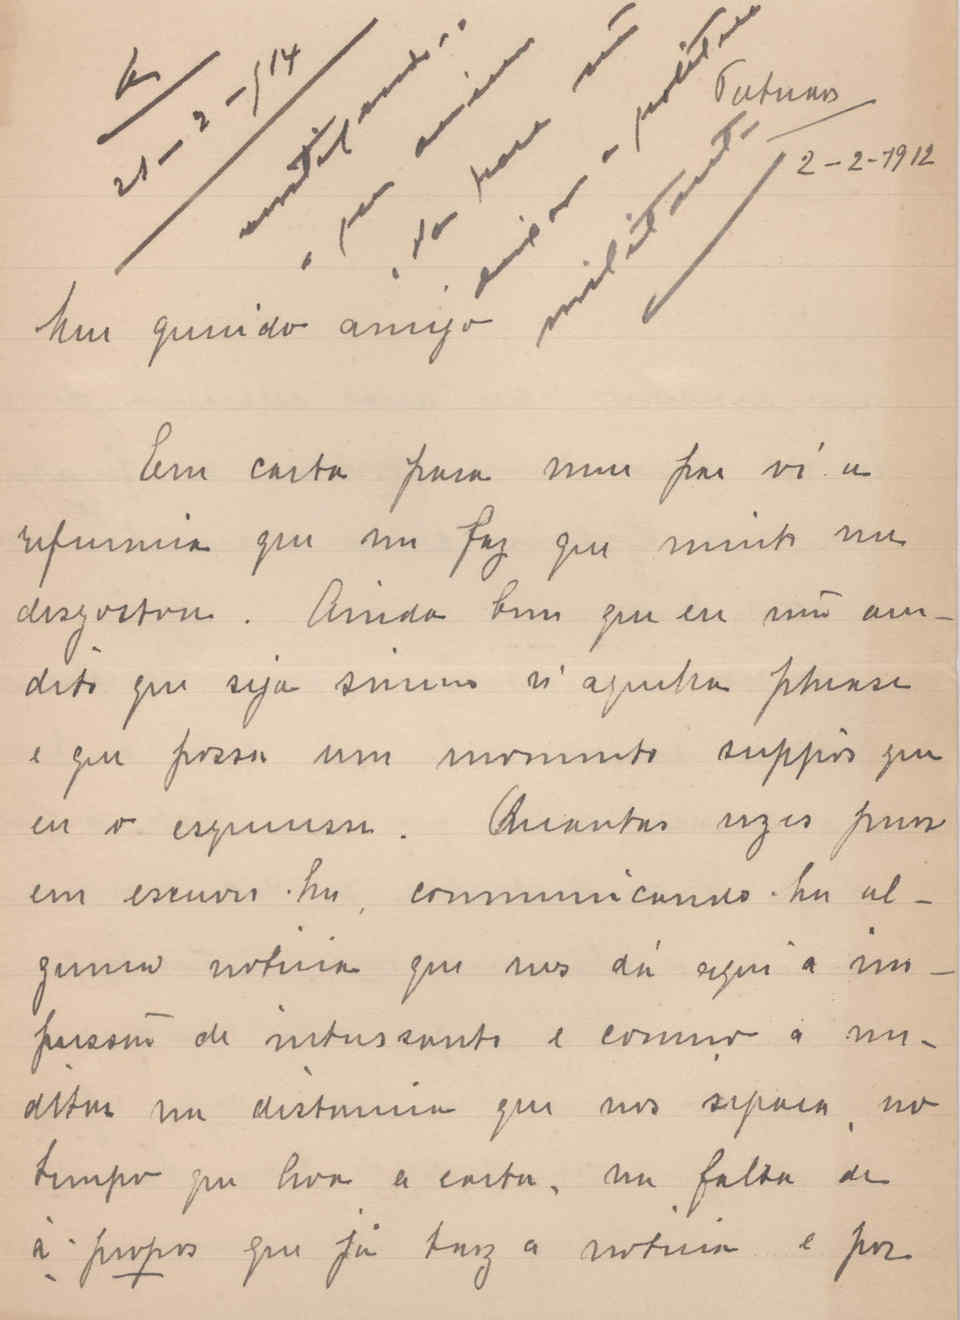 21-2-914
2-2-1912
militante
Meu querido amigo
Em carta para meu pae vi a
referencia que me faz que muito me
desgostou. Ainda bem que eu não acre-
dito que seja sincero n'aquella phrase
e que possa um momento suppôr que
eu o esquecesse. Quantas vezes penso
em escrever-lhe, communicando-lhe al-
guma noticia que nos dá aqui a im-
pressão de interessante e começo a me-
ditar na distancia que nos separa, no
tempo que leva a carta, na falta de
à-propos que já traz a noticia e por